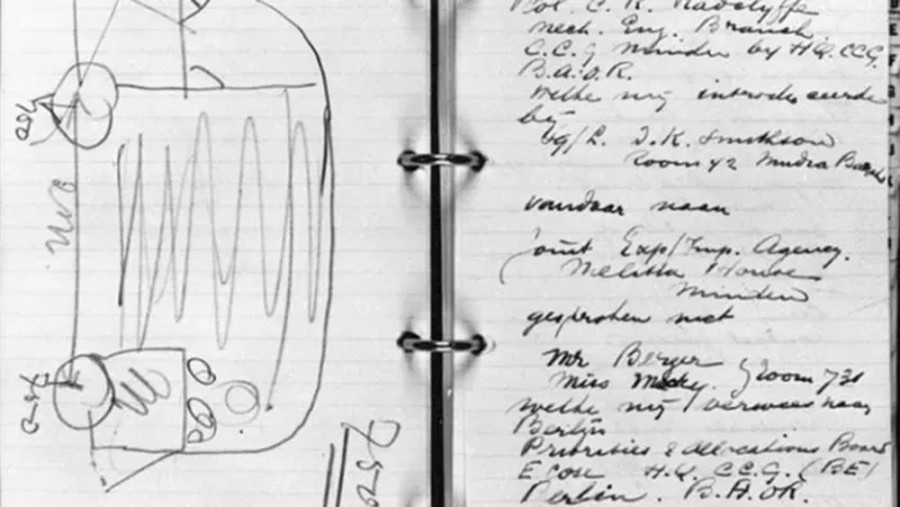 750
750
750
Col. C. R. Radclyffe
Mech. Eng. Branch
C.C.G. Minden by HQ. CCG.
B.A.O.R.
welke mij introduceerde
by
Sq/L. D.K. Smithson
Room 42 Mudra Barracks
vandaar naar
Joint Exp/Imp. Agency.
Melitta House
Minden
gesproken met
Mr Berger
Miss } Room 731
welke mij verwees naar
Berlijn
Priorities & Allocations Board
Econ H.Q. C.C.G. (BE)
Berlin. B.A.O.R.